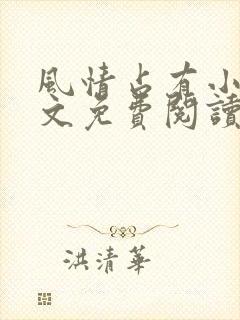 風情占有小
文免費閱讀
洪清華